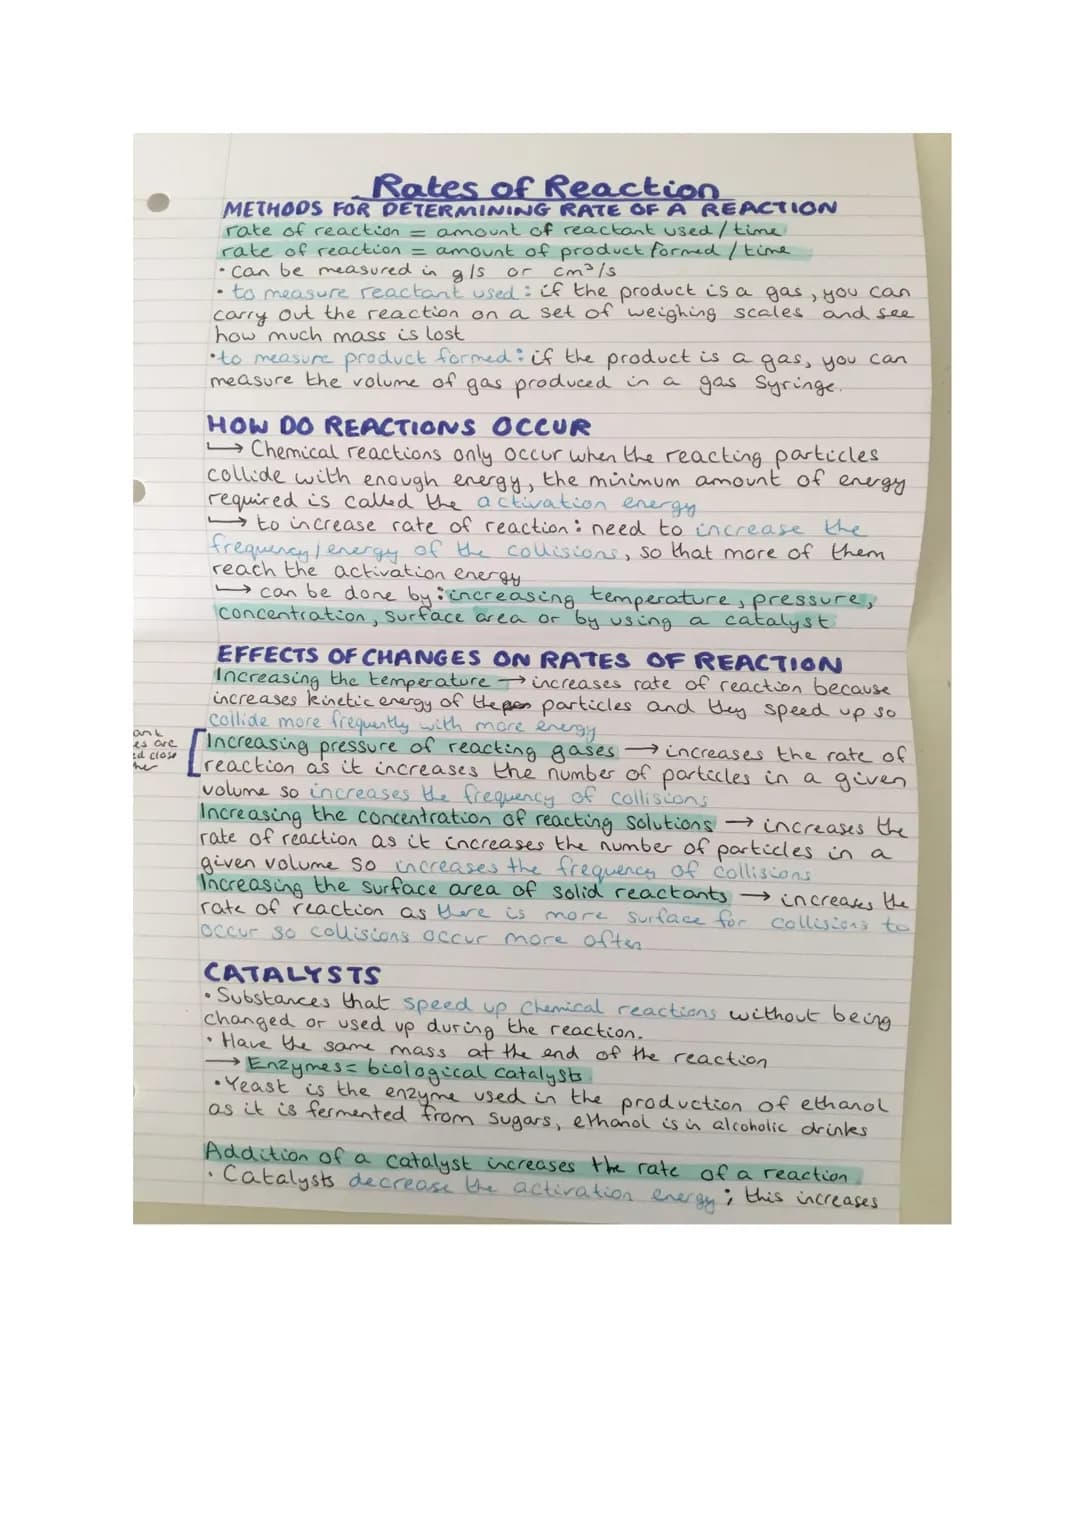 Rates of Reaction
METHODS FOR DETERMINING RATE OF A REACTION
rate of reaction = amount of reactant used / time
rate of reaction = amount of product formed / time
• can be measured in g/s or cm³/s
• to measure reactant used: if the product is a gas, you can
carry out the reaction on a set of weighing scales and see
how much mass is lost
• to measure product formed: if the product is a gas, you can
measure the volume of gas produced in a gas syringe.
HOW DO REACTIONS OCCUR
↳ Chemical reactions only occur when the reacting particles
collide with enough energy, the minimum amount of energy
required is called the activation energy
↳ to increase rate of reaction: need to increase the
frequency/energy of the collisions, so that more of them
reach the activation energy
↳ can be done by: increasing temperature, pressure,
concentration, surface area or by using a catalyst
EFFECTS OF CHANGES ON RATES OF REACTION
Increasing the temperature → increases rate of reaction because
increases kinetic energy of the particles and they speed up so
collide more frequently with more energy
ed close
Increasing pressure of reacting gases → increases the rate of
reaction as it increases the number of particles in a given
volume so increases the frequency of collisions
Increasing the concentration of reacting solutions → increases the
rate of reaction as it increases the number of particles in a
given volume so increases the frequency of collisions
Increasing the surface area of solid reactants → increases the
rate of reaction as there is more surface for collisions to
occur so collisions occur more often
CATALYSTS
• Substances that speed up chemical reactions without being
changed or used up during the reaction.
• Have the same mass at the end of the reaction
→ Enzymes = biological catalysts
• Yeast is the enzyme used in the production of ethanol
as it is fermented from sugars, ethanol is in alcoholic drinks
Addition of a catalyst increases the rate of a reaction
• Catalysts decrease the activation energy; this increases